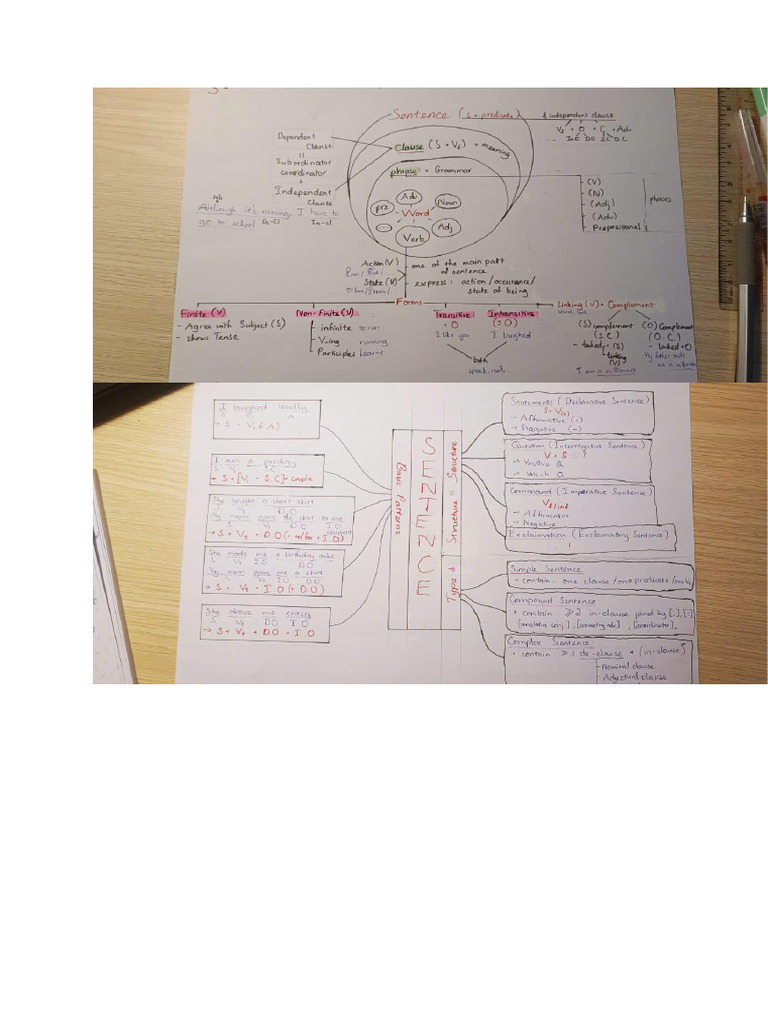 Sentence (S + predicate)
1 independent clause
Vf + O + C + Adv
InO DO S.C O.C
Dependent
Clause
||
Subordinator
coordinator
+
Independent
Clause
Clause (S + Vf) + meaning
phrase + Grammar
Adv
prz
Noun
Word
...
Adj
Verb
(V)
(N)
(Adj)
(Adv)
Prepositional
phrases
Although it's raining, I have to
go to school
De-cl
In-cl
Action (V)
State (V)
one of the main part
of sentence
express: action/occurance/
state of being
Forms
Finite (V)
- Agree with Subject (S)
- shows Tense
Non-Finite (V)
infinite to run
V-ing running
Participles learnt
Transitive
+ O
I like you
Intransitive
I laughed
both
speak, read,
Linking (V) + Complement
(S) complement
(S.C)
- linked + (S)
linking
(V)
I am a millionaire
(O) Complement
(O.C)
- linked + O
SENTENCE
Basic Patterns
Structure
Types & Structure
I laughed loudly
S
A
I am a prodigy
She bought a short skirt
S Vt D.O
My mom gave the skirt to me
S Vt D.O I.O
recipient
She made me a birthday cake
S Vt I.O D.O
My mom gave me a skirt
S Vt I.O D.O
→ S + Vt + I.O (+ D.O)
She drove me crazy
S Vt D.O I.O
→ S + Vt + D.O + I.O
Statements (Declarative Sentence)
→ Affirmative (+)
→ Negative (-)
Question (Interrogative Sentence)
V + S ...?
→ Yes/No Q
→ Wh-h Q
Command (Imperative Sentence)
Vf/inf
→ Affirmative
→ Negative
Exclaimation (Exclamatory Sentence)
!
Simple Sentence
+ contain: one clause/one predicate/
Compound Sentence
+ contain ≥2 in-clause joined by [;], [:]
[coordinator],
Complex Sentence
+ contain: ≥1 de-clause + (in-clause)
- Nominal clause
- Adjectival clause